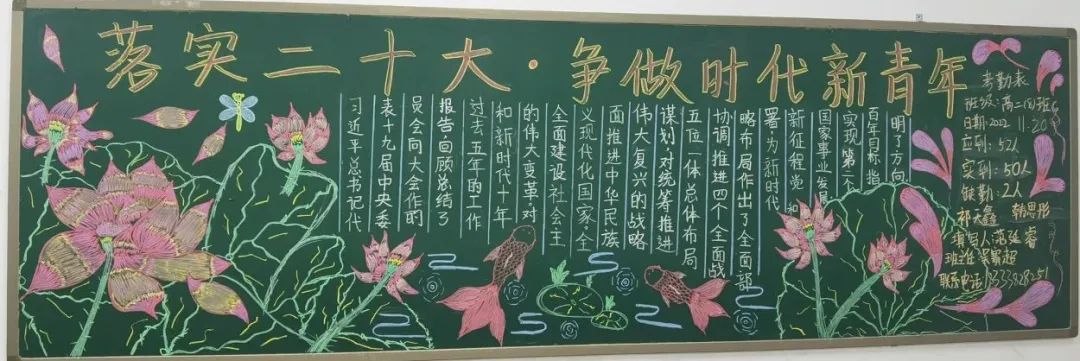 落实二十大·争做时代新青年
习近平总书记代
表十九届中央委
员会向大会作的
报告回顾总结了
过去五年的工作
和新时代十年
的伟大变革.对
全面建设社会主
义现代化国家。全
面推进中华民族
伟大复兴的战略
谋划,对统筹推进
五位一体总体布局
协调推进四个全面战
略布局作出了全面部
署为新时代
新征程党和
国家事业发展
实现第二个
百年目标指
明了方向
考勤表
班级:高二班
日期:2022 11.20
应到:52人
实到:50人
缺勤:2人
韩思彤
填写人范延睿
联系电话